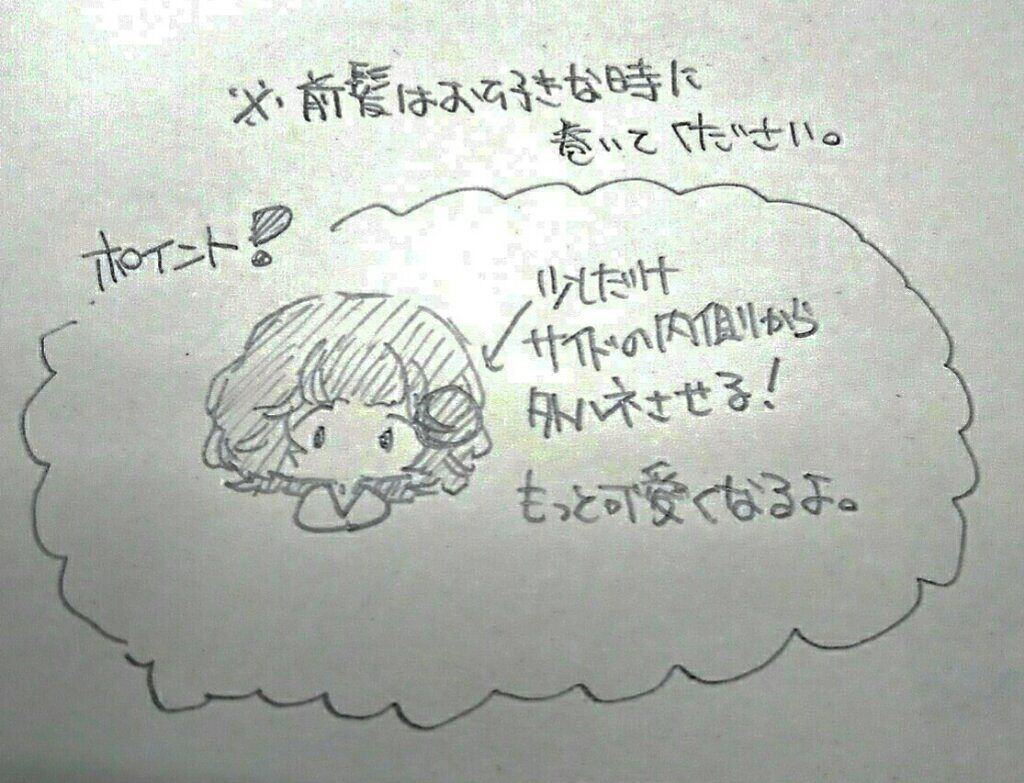 ※前髪はお好きな時に
巻いてください。
ポイント!
少しだけ
サイドの内側から
外ハネさせる!
もっと可愛くなるよ。